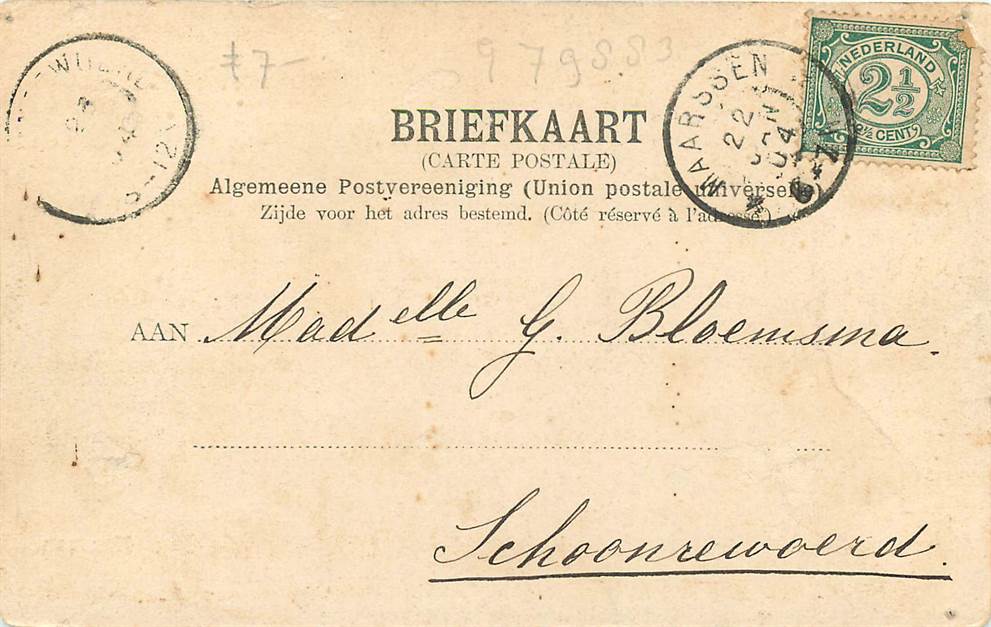 979883
7-
NEDERLAND
2½
2½ CENT
MAARSSEN
22
04
23
BRIEFKAART
(CARTE POSTALE)
Algemeene Postvereeniging (Union postale universelle)
Zijde voor het adres bestemd. (Côté réservé à l'adresse)
AAN Madelle G. Bloemsma.
Schoonrewoerd.